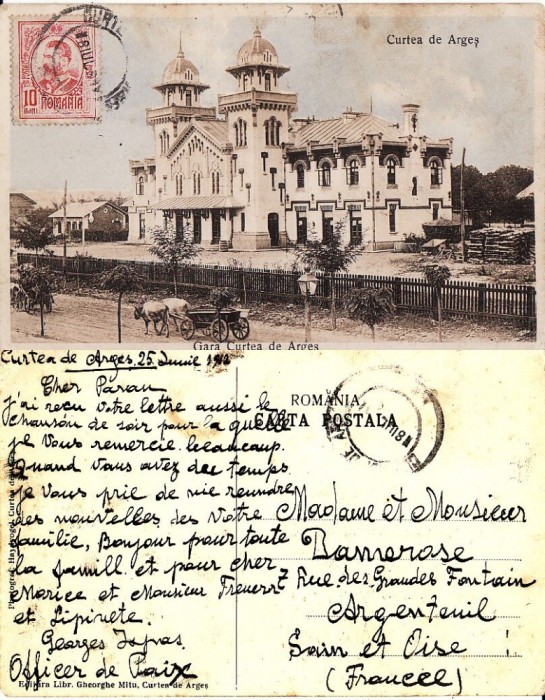 Curtea de Argeș
10
BANI
ROMANIA
Gara Curtea de Argeș
Curtea de Arges, 25 Iunie
Cher Páran
j'ai recu votre lettre aussi le
chanson de soir pour la quelle
je vous remercie beaucoup.
Quand vous avez des temps
je vous prie de me rendre
des nouvelles des votre
familie, Bonjour pour toute
la famill et pour cher
Marice et Monsieur
et
Georges
Officer de Paix
ROMÂNIA
CARTA POSTALA
Madame et Monsieur
Damerose
7 Rue des Grandes Fontain
Argenteuil
Sain et Oise
(Francee)
Editura Libr. Gheorghe Mitu, Curtea de Argeș